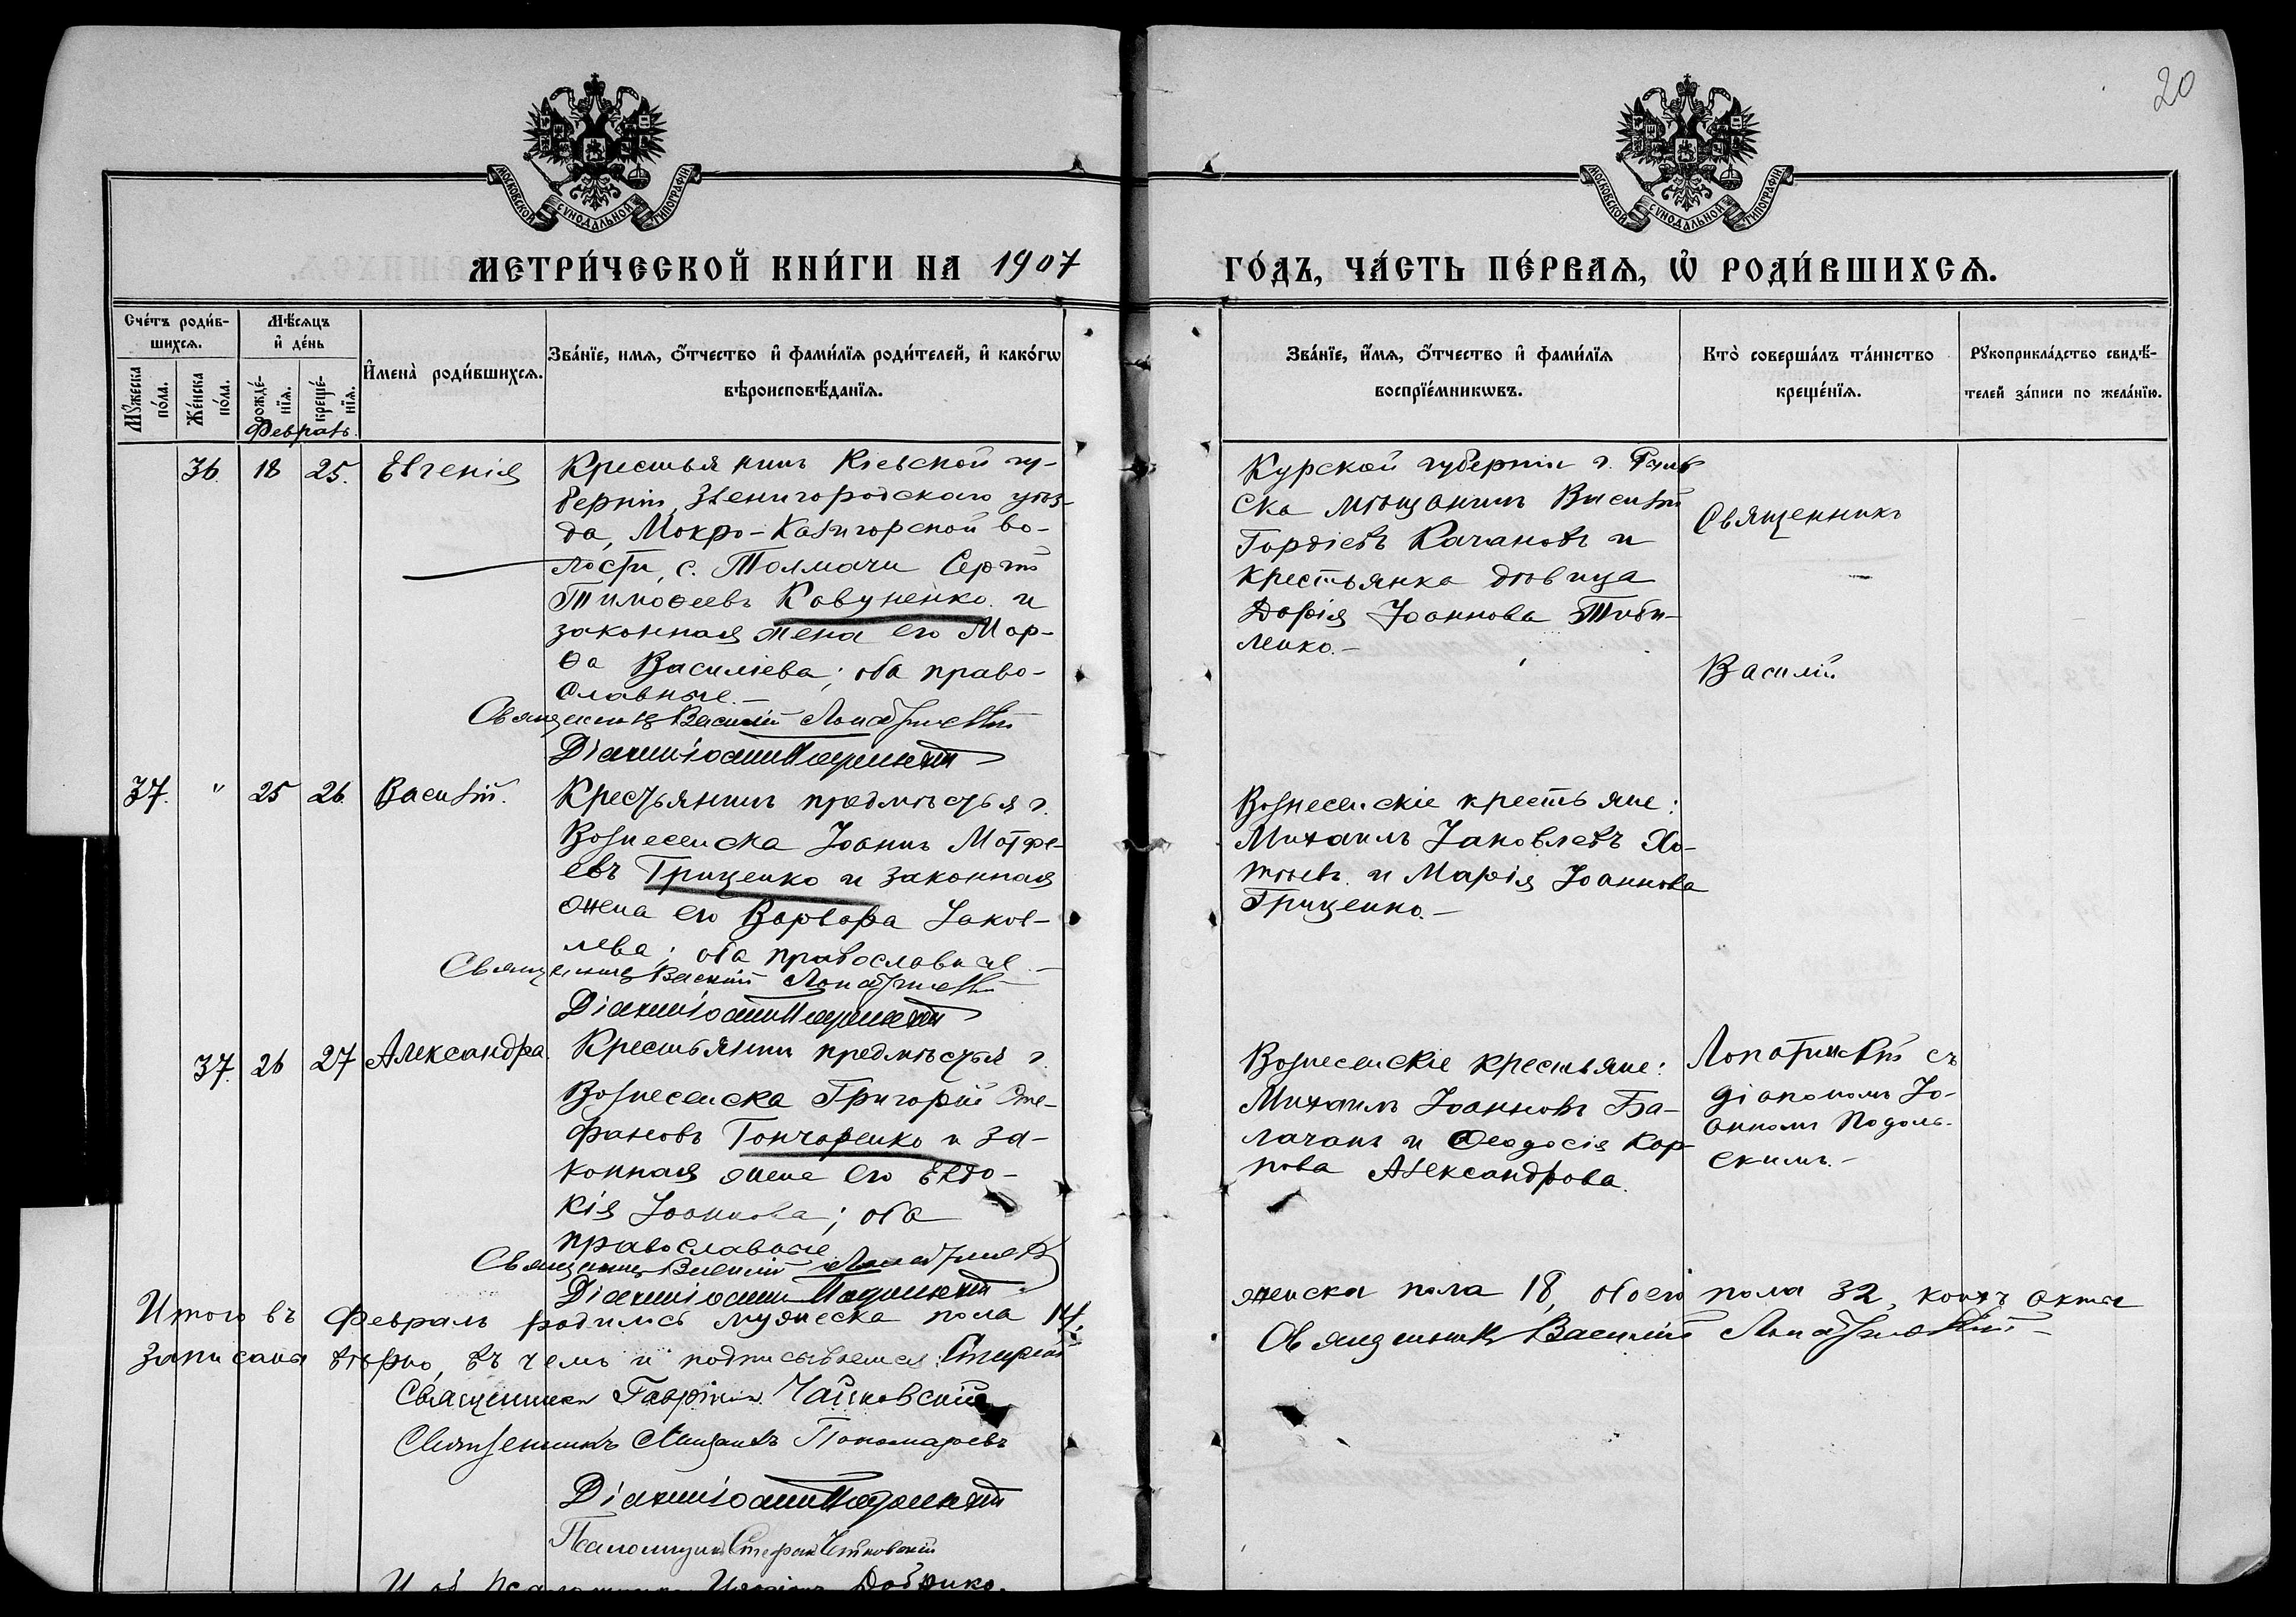 20
МОСКОВСКОЙ СѴНОДАЛЬНОЙ ТИПОГРАФІИ
МОСКОВСКОЙ СѴНОДАЛЬНОЙ ТИПОГРАФІИ
МЕТРИ́ЧЕСКОЙ КНИ́ГИ НА 1907
ГО́ДЪ, ЧА́СТЬ ПЕ́РВАЯ, Ѡ҆ РОДИ́ВШИХСЯ.
Сче́тъ роди́в-
шихся.
Мѣ́сяцъ
и҆ де́нь
Мꙋ́жеска
по́ла.
Же́нска
по́ла.
рожде́-
нїя.
креще́-
нїя.
И҆мена̀ роди́вшихся.
Зва́нїе, имя, ѻ҆́тчество и҆ фами́лїя роди́телей, и҆ како́гѡ
вѣроисповѣ́данїя.
Зва́нїе, и҆́мя, ѻ҆́тчество и҆ фами́лїя
воспрїе́мникѡвъ.
Кто̀ соверша́лъ та́инство
креще́нїя.
Рꙋкоприкла́дство свидѣ́-
телей за́писи по жела́нїю.
Февраль.
36. 18 25. Евгенія
Крестьянинъ Кіевской гу-
берніи, Звенигородскаго уѣз-
да, Мокро-Калигорской во-
лости, с. Толмачи Сергій
Тимоѳеевъ Кавуненко и
законная жена его Мар-
ѳа Василіева; оба право-
славные.-
Священникъ Василій Лопатинскій
Діаконъ Іоаннъ Подольскій
Курской губерніи г. Рыль
ска мѣщанинъ Василій
Гордіевъ Качановъ и
крестьянка дѣвица
Дарія Іоаннова Тиби-
ленко.-
Священникъ
Василій
37. " 25 26. Василій.
Крестьянинъ предмѣстья г.
Вознесенска Іоаннъ Матфе-
евъ Гриценко и законная
жена его Варвара Іаков-
лева; оба православные.-
Священникъ Василій Лопатинскій
Діаконъ Іоаннъ Подольскій
Вознесенскіе крестьяне:
Михаилъ Іаковлевъ Хо-
тѣевъ и Марія Іоаннова
Гриценко.-
37. 26 27 Александра.
Крестьянинъ предмѣстья г.
Вознесенска Григорій Сте-
фановъ Гончаренко и за-
конная жена его Евдо-
кія Іоаннова; оба
православные
Священникъ Василій Лопатинскій
Діаконъ Іоаннъ Подольскій
Вознесенскіе крестьяне:
Михаилъ Іоанновъ Ба-
лачанъ и Ѳеодосія Кар-
пова Александрова.
Лопатинскій съ
діакономъ Іо-
анномъ Подоль-
скимъ.-
Итого въ Февралѣ родилось мужеска пола 14,
женска пола 18, обоего пола 32, коихъ акты
записаны вѣрно, въ чемъ и подписываемся:
Священникъ Василій Лопатинскій
Священникъ Гавріилъ Чайковскій
Священникъ Пономаревъ
Діаконъ Іоаннъ Подольскій
Псаломщикъ Стефанъ
И об псаломщика